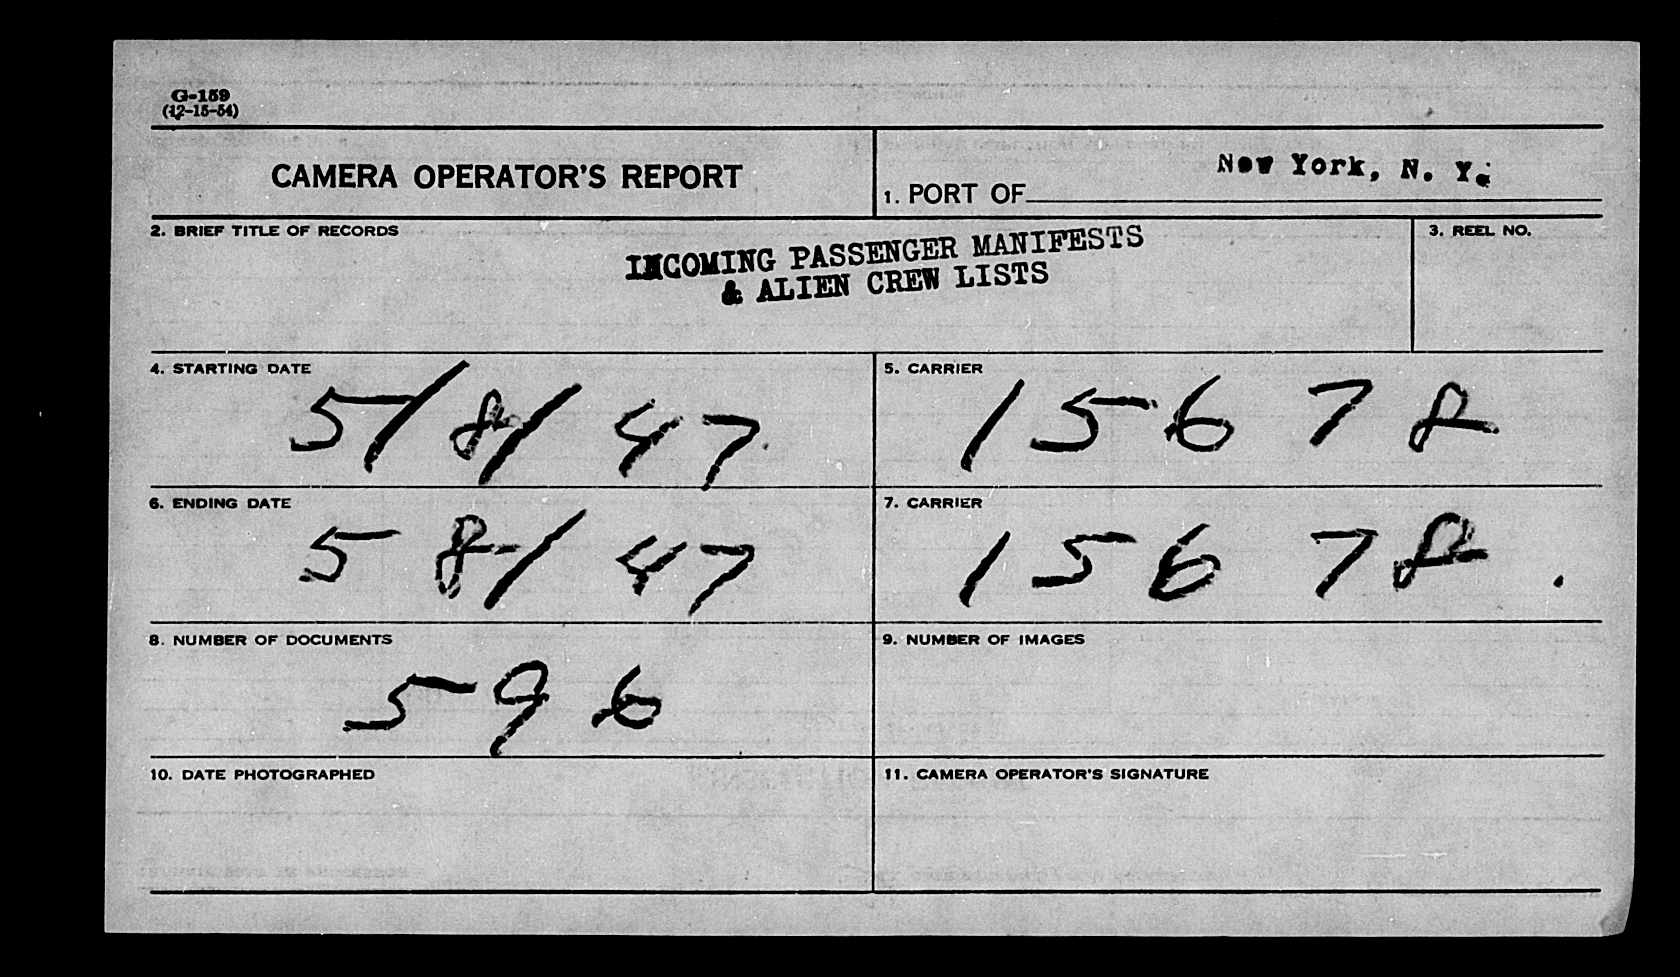 G-159
(12-15-54)
CAMERA OPERATOR'S REPORT
1. PORT OF New York, N. Y.
2. BRIEF TITLE OF RECORDS
INCOMING PASSENGER MANIFESTS
& ALIEN CREW LISTS
3. REEL NO.
4. STARTING DATE
5/8/47
5. CARRIER
15678
6. ENDING DATE
5 8/47
7. CARRIER
15678
8. NUMBER OF DOCUMENTS
596
9. NUMBER OF IMAGES
10. DATE PHOTOGRAPHED
11. CAMERA OPERATOR'S SIGNATURE